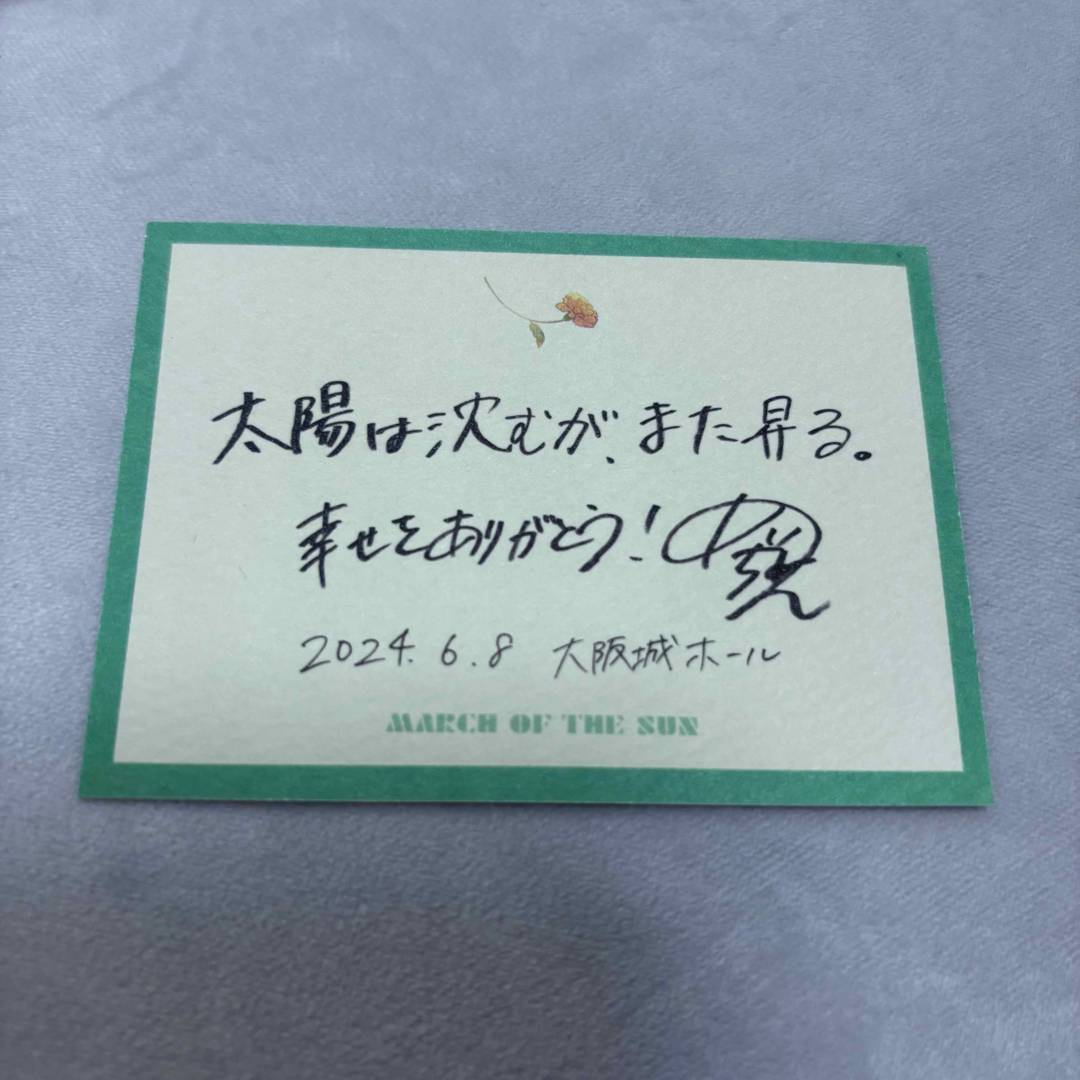 太陽は沈むが、また昇る。
幸せをありがとう!
2024.6.8 大阪城ホール
MARCH OF THE SUN